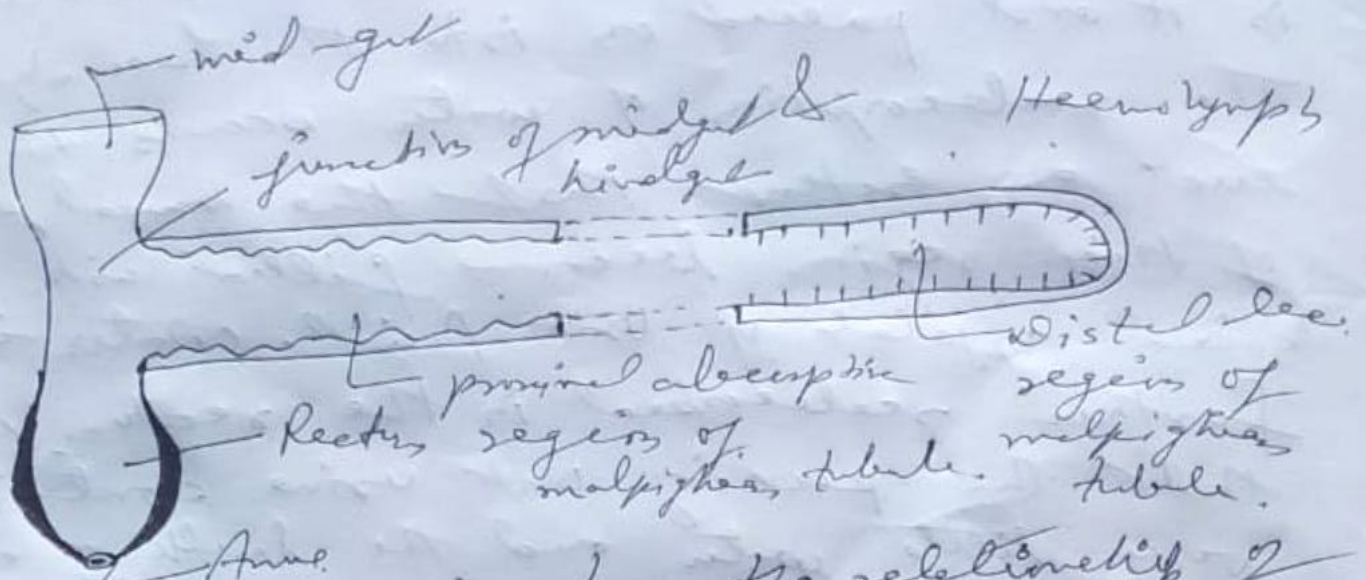 mid-gut
junction of midgut &
hindgut
Haemolymph
Distal
region of
malpighian
tubule.
proximal absorptive
region of
malpighian tubule.
Rectum
Anus
the relationship of